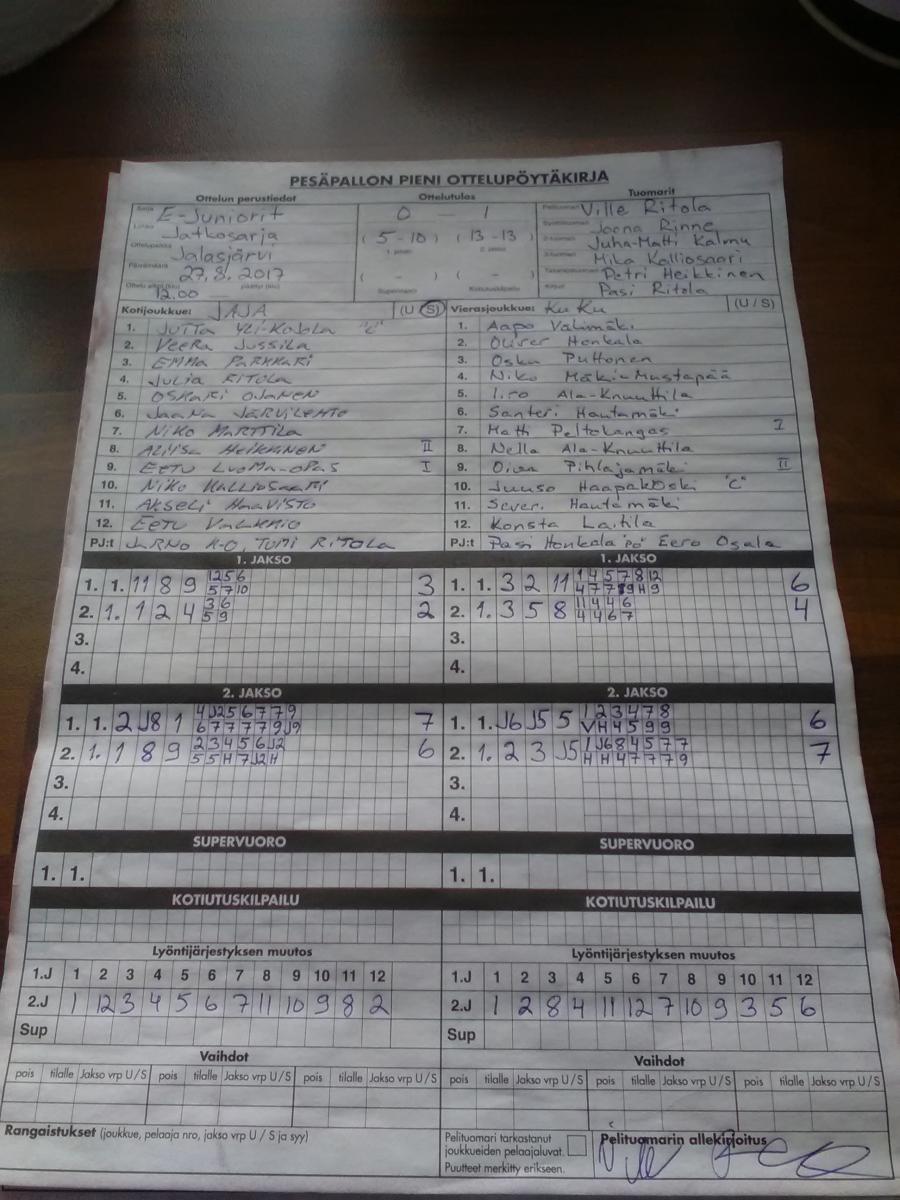 PESÄPALLON PIENI OTTELUPÖYTÄKIRJA
Ottelun perustiedot Ottelutulos Tuomarit
Sarja E-Juniorit 0 - 1 Pelituomari Ville Ritola
Lohko Jatkosarja (5-10) (13-13) Syöttötuomari Joona Rinne
2-tuomari Juha-Matti Kalmu
Ottelupaikka Jalasjärvi 1. jakso 2. jakso 3-tuomari Mika Kalliosaari
Päivämäärä 27.8.2017 ( - ) ( - ) Takarajatuomari Petri Heikkinen
Ottelu alkoi (klo) 12.00 päättyi (klo) Supervuoro Kotiutuskilpailu Kirjuri Pasi Ritola
Kotijoukkue: JAJA (U/S) Vierasjoukkue: KuKu (U/S)
1. JUTTA YLI-KOJOLA "C" 1. Aapo Välimäki
2. VEERA JUSSILA 2. Oliver Honkala
3. EMMA PARKKARI 3. Osku Puttonen
4. JULIA RITOLA 4. Niko Mäki-Mustapää
5. OSKARI OJANEN 5. Iiro Ala-Knuuttila
6. JAANA JÄRVILEHTO 6. Santeri Hautamäki
7. NIKO MARTTILA 7. Matti Peltokangas I
8. ALIISA HEIKKINEN II 8. Nella Ala-Knuuttila
9. EETU LUOMA-OPAS I 9. Oiva Pihlajamäki II
10. NIKO KALLIOSAARI 10. Juuso Haapakoski "C"
11. AKSELI HAAVISTO 11. Severi Hautamäki
12. EETU VALKAIO 12. Konsta Laitila
PJ:t JARNO K-O, TOMI RITOLA PJ:t Pasi Honkala "PÖ" Eero Osala
1. JAKSO 1. JAKSO
1. 1. 11 8 9 1 2 5 6 3 1. 1. 3 2 11 1 4 5 7 8 12 6
5 7 10 4 7 7 9 H 9
2. 1. 1 2 4 3 6 2 2. 1. 3 5 8 11 4 4 6 4
5 9 4 4 6 7
3. 3.
4. 4.
2. JAKSO 2. JAKSO
1. 1. 2 J8 1 4 J2 5 6 7 7 9 7 1. 1. J6 J5 5 1 2 3 4 7 8 6
6 7 7 7 7 9 J9 V H 4 5 9 9
2. 1. 1 8 9 2 3 4 5 6 J2 6 2. 1. 2 3 J5 1 J6 8 4 5 7 7 7
5 5 H 7 J2 H H H 4 7 7 7 9
3. 3.
4. 4.
SUPERVUORO SUPERVUORO
1. 1. 1. 1.
KOTIUTUSKILPAILU KOTIUTUSKILPAILU
Lyöntijärjestyksen muutos Lyöntijärjestyksen muutos
1.J 1 2 3 4 5 6 7 8 9 10 11 12 1.J 1 2 3 4 5 6 7 8 9 10 11 12
2.J 1 12 3 4 5 6 7 11 10 9 8 2 2.J 1 2 8 4 11 12 7 10 9 3 5 6
Sup Sup
Vaihdot Vaihdot
pois tilalle Jakso vrp U/S pois tilalle Jakso vrp U/S pois tilalle Jakso vrp U/S pois tilalle Jakso vrp U/S pois tilalle Jakso vrp U/S pois tilalle Jakso vrp U/S
Rangaistukset (joukkue, pelaaja nro, jakso vrp U / S ja syy) Pelituomari tarkastanut joukkueiden pelaajaluvat. Pelituomarin allekirjoitus
Puutteet merkitty erikseen.